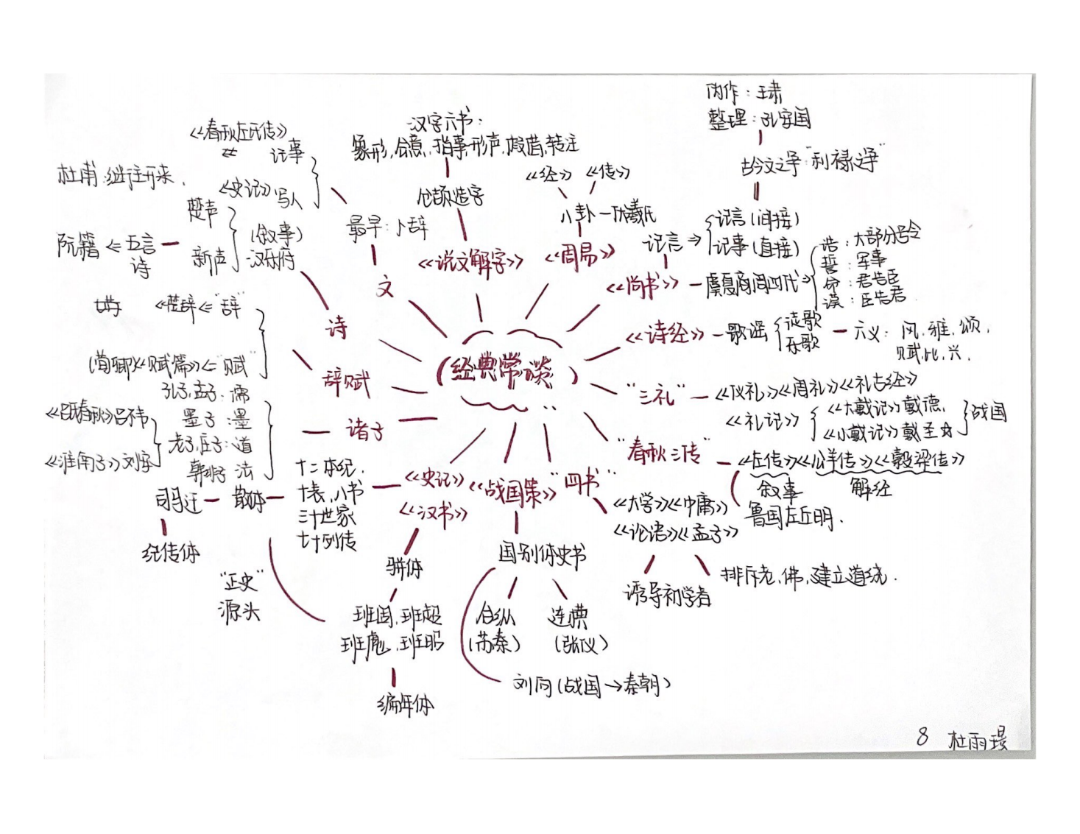 伪作：王肃
整理：孔安国
古今文之争"利禄之争"
汉字六书：
象形，会意，指事，形声，假借，转注
仓颉造字
《说文解字》
《经》 《传》
八卦—伏羲氏
《周易》
记言→
记言（间接）
记事（直接）
《尚书》—虞夏商周四代
诰：大部分号令
誓：军事
命：君告臣
谟：臣告君
《诗经》—歌谣
徒歌
乐歌
六义：风，雅，颂，
赋，比，兴。
"三礼"—《仪礼》《周礼》《礼古经》
《礼记》
《大戴记》戴德，
《小戴记》戴圣
战国
"春秋三传"—《左传》《公羊传》《穀梁传》
叙事
解经
鲁国左丘明.
"四书"
《大学》《中庸》
《论语》《孟子》
诱导初学者
排斥老，佛，建立道统.
《战国策》
国别体史书
合纵
（苏秦）
连横
（张仪）
刘向（战国→秦朝）
《史记》
《汉书》
骈体
班固，班超
班彪，班昭
编年体
十二本纪，
十表，八书
三十世家
七十列传
散体
司马迁
纪传体
"正史"
源头
诸子
孔子，孟子：儒
墨子：墨
老子，庄子：道
韩非子：法
《吕氏春秋》吕不韦
《淮南子》刘安
辞赋
《楚辞》←"辞"
（荀卿）《赋篇》←"赋"
诗
（叙事）
汉乐府
楚声
新声
五言
诗
阮籍
杜甫：继往开来.
文
最早：卜辞
《春秋左氏传》
记事
《史记》写人
（经典常谈）
8 杜雨璟